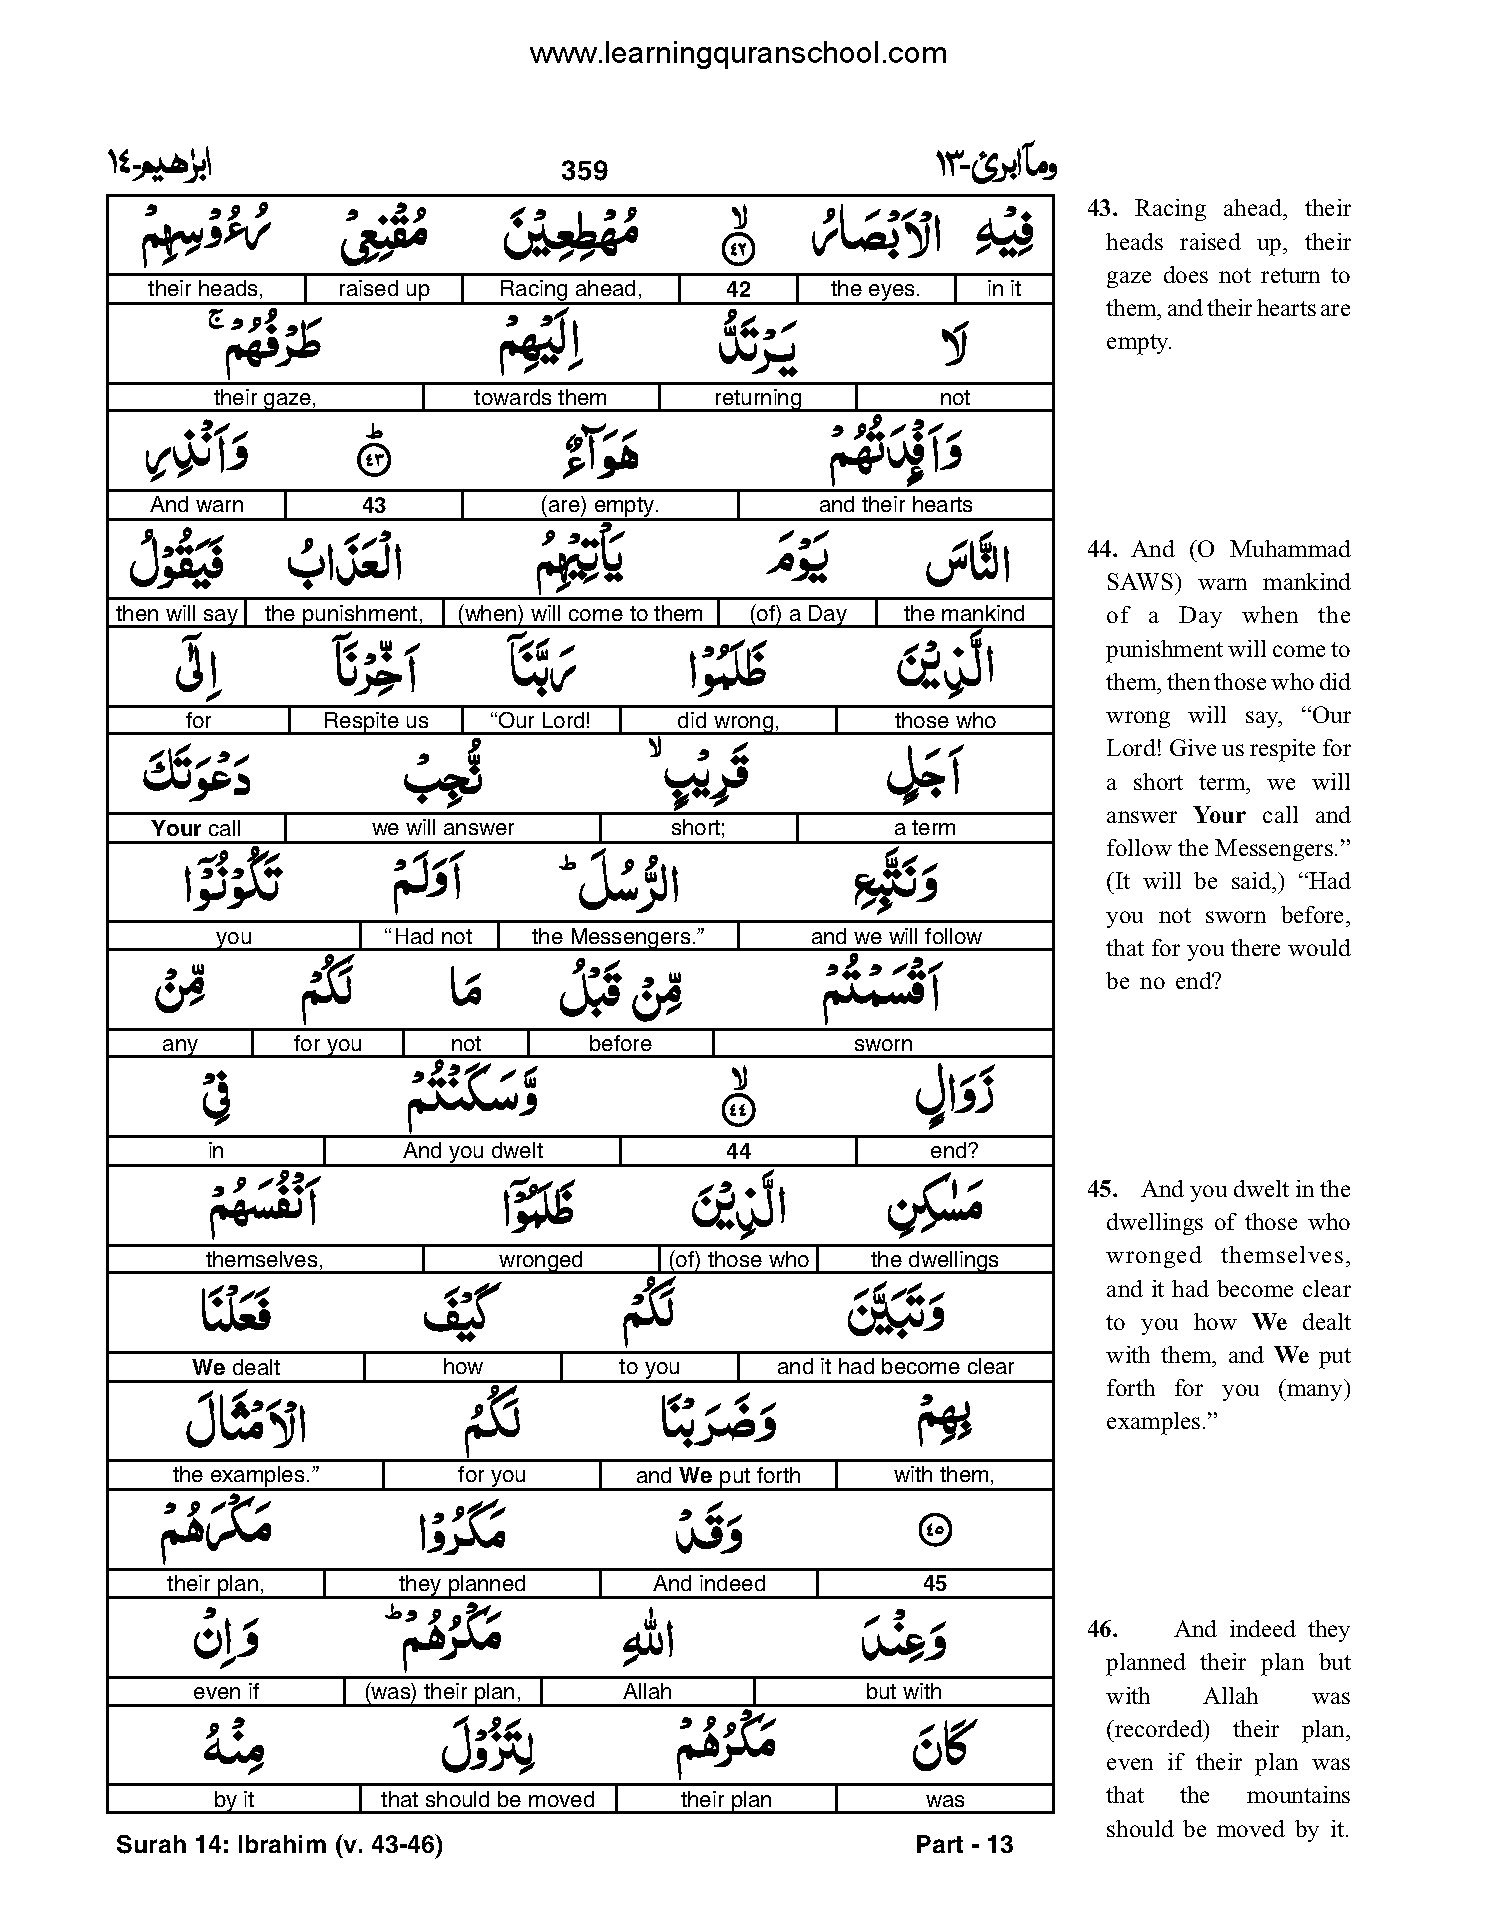 www.learningquranschool.com
ابرٰهيم-١٤ 359 ومآ ابرئ-١٣
فِيْهِ الْاَبْصَارُ ۙ﴿٤٢﴾ مُهْطِعِيْنَ مُقْنِعِيْ رُءُوْسِهِمْ
their heads, raised up Racing ahead, 42 the eyes. in it
لَا يَرْتَدُّ اِلَيْهِمْ طَرْفُهُمْ ۚ
their gaze, towards them returning not
وَاَفْـِٕدَتُهُمْ هَوَآءٌ ؕ﴿٤٣﴾ وَاَنْذِرِ
And warn 43 (are) empty. and their hearts
النَّاسَ يَوْمَ يَاْتِيْهِمُ الْعَذَابُ فَيَقُوْلُ
then will say the punishment, (when) will come to them (of) a Day the mankind
الَّذِيْنَ ظَلَمُوْا رَبَّنَآ اَخِّرْنَآ اِلٰٓى
for Respite us “Our Lord! did wrong, those who
اَجَلٍ قَرِيْبٍ ۙ نُّجِبْ دَعْوَتَكَ
Your call we will answer short; a term
وَنَتَّبِعِ الرُّسُلَ ؕ اَوَلَمْ تَكُوْنُوْٓا
you “Had not the Messengers.” and we will follow
اَقْسَمْتُمْ مِّنْ قَبْلُ مَا لَكُمْ مِّنْ
any for you not before sworn
زَوَالٍ ۙ﴿٤٤﴾ وَّسَكَنْتُمْ فِيْ
in And you dwelt 44 end?
مَسٰكِنِ الَّذِيْنَ ظَلَمُوْٓا اَنْفُسَهُمْ
themselves, wronged (of) those who the dwellings
وَتَبَيَّنَ لَكُمْ كَيْفَ فَعَلْنَا
We dealt how to you and it had become clear
بِهِمْ وَضَرَبْنَا لَكُمُ الْاَمْثَالَ
the examples.” for you and We put forth with them,
﴿٤٥﴾ وَقَدْ مَكَرُوْا مَكْرَهُمْ
their plan, they planned And indeed 45
وَعِنْدَ اللّٰهِ مَكْرُهُمْ ؕ وَاِنْ
even if (was) their plan, Allah but with
كَانَ مَكْرُهُمْ لِتَزُوْلَ مِنْهُ
by it that should be moved their plan was
Surah 14: Ibrahim (v. 43-46) Part - 13
43. Racing ahead, their
heads raised up, their
gaze does not return to
them, and their hearts are
empty.
44. And (O Muhammad
SAWS) warn mankind
of a Day when the
punishment will come to
them, then those who did
wrong will say, “Our
Lord! Give us respite for
a short term, we will
answer Your call and
follow the Messengers.”
(It will be said,) “Had
you not sworn before,
that for you there would
be no end?
45. And you dwelt in the
dwellings of those who
wronged themselves,
and it had become clear
to you how We dealt
with them, and We put
forth for you (many)
examples.”
46. And indeed they
planned their plan but
with Allah was
(recorded) their plan,
even if their plan was
that the mountains
should be moved by it.